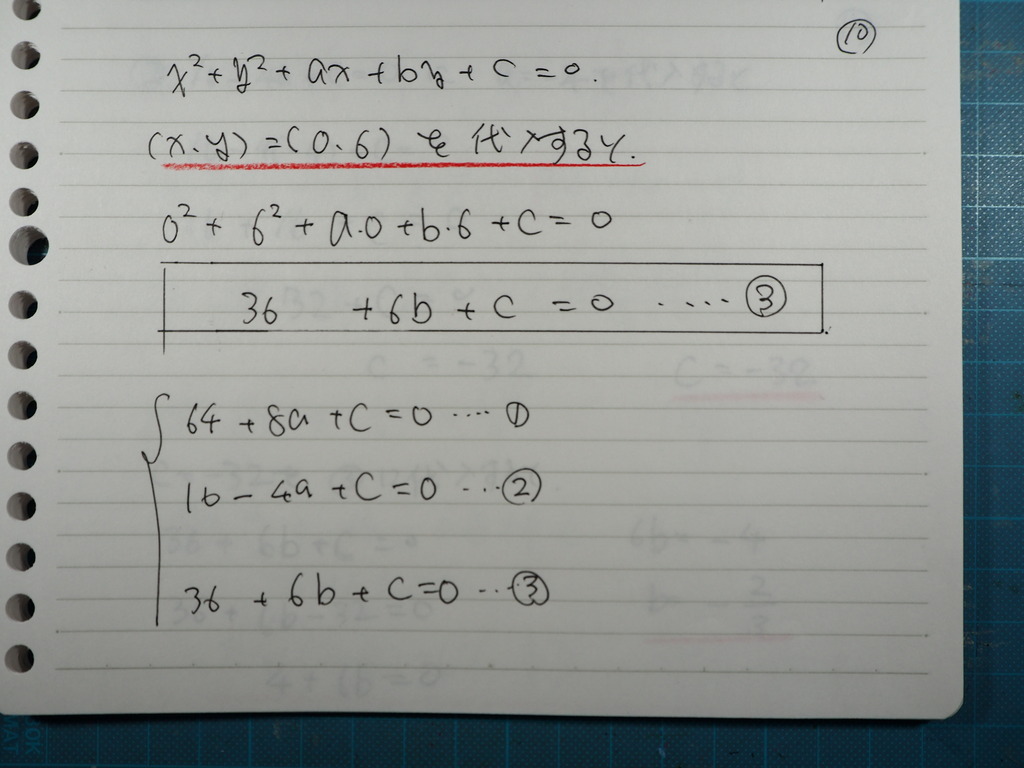 ⑩
x²+y²+ax+by+c=0.
(x.y)=(0.6)を代入すると.
0²+6²+a·0+b·6+c=0
36 +6b+c=0 ····· ③
64+8a+c=0 ···· ①
16-4a+c=0 ···②
36+6b+c=0 ···③